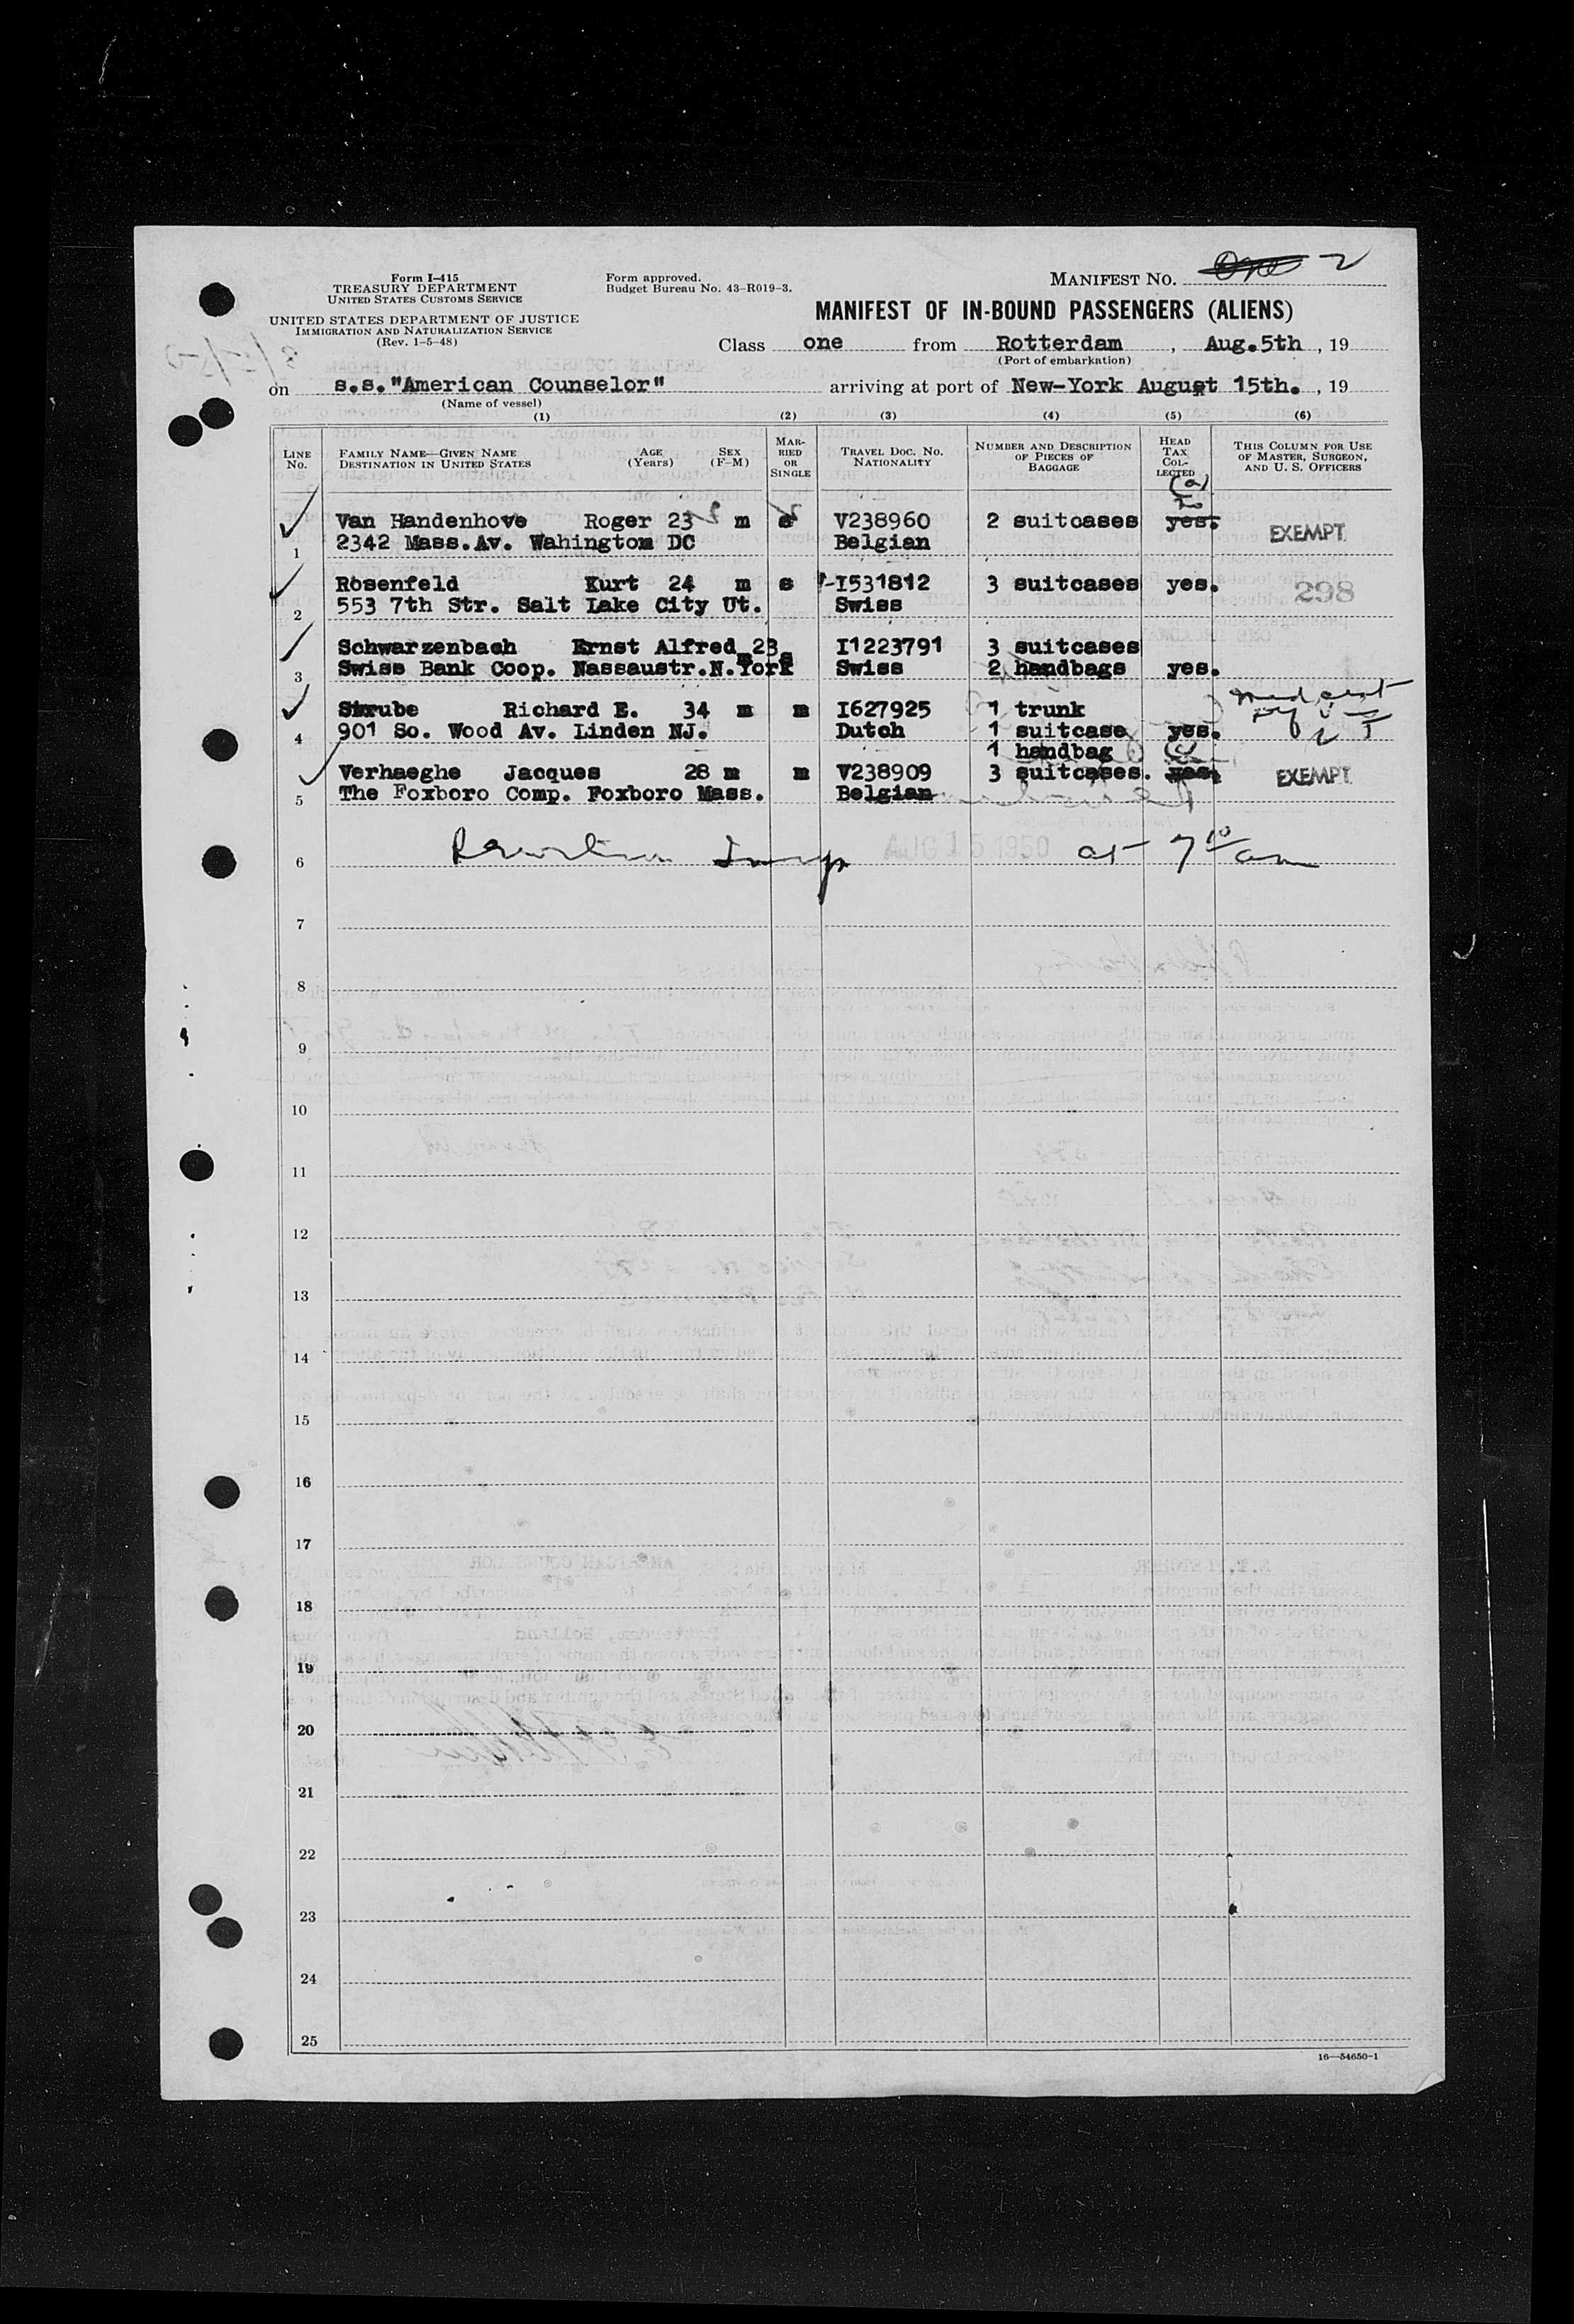 Form I-415
TREASURY DEPARTMENT
UNITED STATES CUSTOMS SERVICE
UNITED STATES DEPARTMENT OF JUSTICE
IMMIGRATION AND NATURALIZATION SERVICE
(Rev. 1-5-48)
Form approved.
Budget Bureau No. 43-R019-3.
MANIFEST NO. One 2
MANIFEST OF IN-BOUND PASSENGERS (ALIENS)
Class one from Rotterdam, Aug.5th, 19
(Port of embarkation)
on s.s."American Counselor" arriving at port of New-York August 15th., 19
(Name of vessel)
(1) (2) (3) (4) (5) (6)
LINE No.
FAMILY NAME—GIVEN NAME AGE (Years) SEX (F-M)
DESTINATION IN UNITED STATES
MARRIED OR SINGLE
TRAVEL DOC. NO. NATIONALITY
NUMBER AND DESCRIPTION OF PIECES OF BAGGAGE
HEAD TAX COLLECTED
THIS COLUMN FOR USE OF MASTER, SURGEON, AND U. S. OFFICERS
(a)
Van Handenhove Roger 23 m s V238960 2 suitcases yes. EXEMPT
1 2342 Mass.Av. Wahington DC Belgian
Rosenfeld Kurt 24 m s I531812 3 suitcases yes. 298
2 553 7th Str. Salt Lake City Ut. Swiss
Schwarzenbach Ernst Alfred 23 m s I1223791 3 suitcases
3 Swiss Bank Coop. Nassaustr.N.York Swiss 2 handbags yes.
Skrube Richard E. 34 m m I627925 1 trunk
4 901 So. Wood Av. Linden NJ. Dutch 1 suitcase yes.
1 handbag
Verhaeghe Jacques 28 m m V238909 3 suitcases. yes. EXEMPT
5 The Foxboro Comp. Foxboro Mass. Belgian
6 AUG 15 1950 at 7 10 am
7
8
9
10
11
12
13
14
15
16
17
18
19
20
21
22
23
24
25
16—54650-1